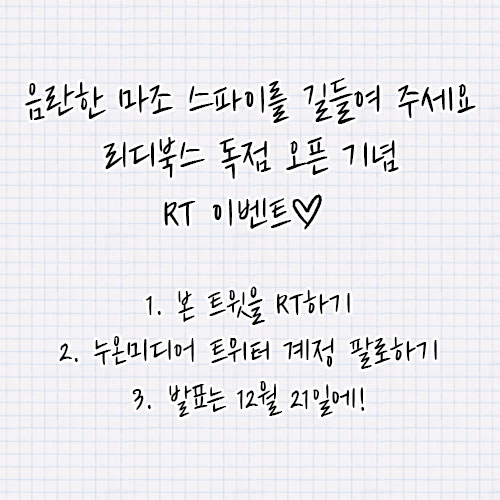 음란한 마조 스파이를 길들여 주세요
리디북스 독점 오픈 기념
RT 이벤트♡
1. 본 트윗을 RT하기
2. 누온미디어 트위터 계정 팔로하기
3. 발표는 12월 21일에!